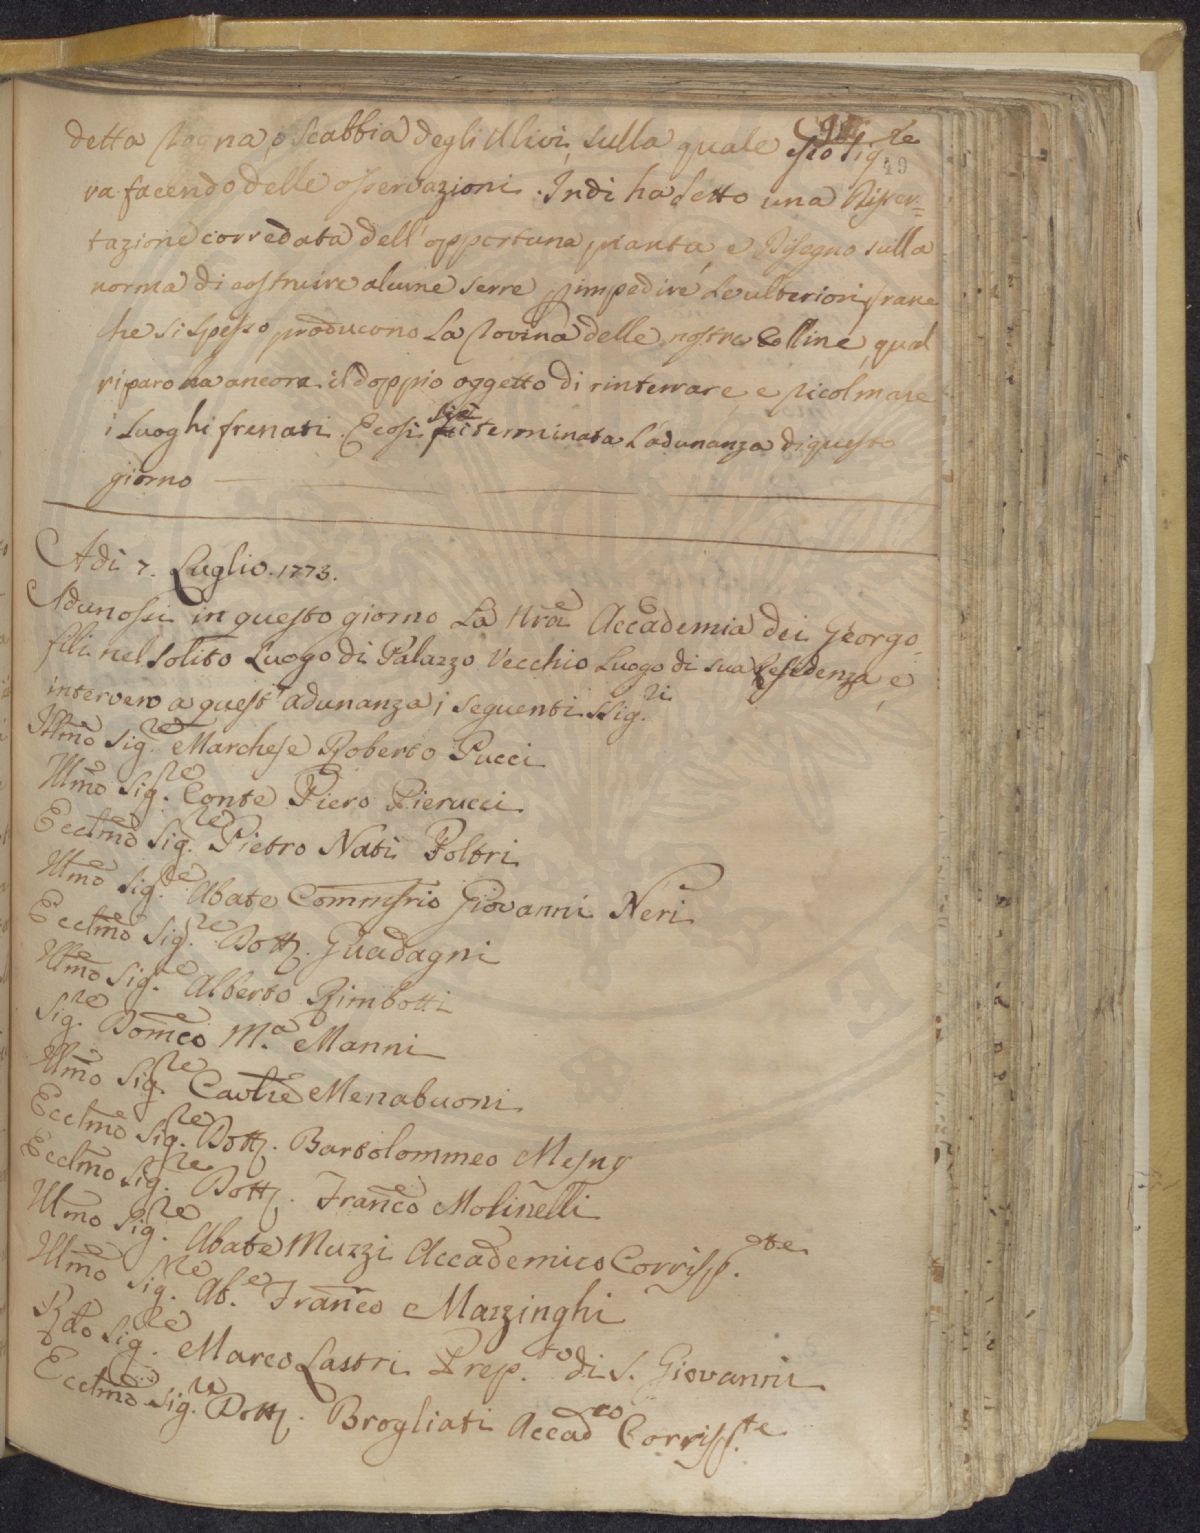 detta Rogna, o Scabbia degli Ulivi, sulla quale esso Sig.re
49
va facendo delle osservazioni. Indi ha letto una Disser=
tazione corredata dell'opportuna pianta, e Disegno sulla
norma di costruire alcune serre p impedire le ulteriori frane
che si spesso producono la Rovina delle nostre Colline, qual
riparo ha ancora il doppio oggetto di rinterrare, e ricolmare
i Luoghi frenati. E così sia terminata l'adunanza di questo
giorno
Adì 7. Luglio. 1773.
Adunossi in questo giorno la Nra Accademia dei Georgo-
fili nel solito Luogo di Palazzo Vecchio Luogo di sua Residenza, e
intervero a quest'adunanza i seguenti SSig.ri
Illmo Sig.re Marchese Roberto Pucci
Illmo Sig.re Conte Piero Pierucci
Ecclmo Sig.re Pietro Nati Poltri
Illmo Sig.re Abate Commisrio Giovanni Neri
Ecclmo Sig.re Dott. Guadagni
Illmo Sig.re Alberto Rimbotti
Sig.re Domco M.a Manni
Illmo Sig.re Cavlre Menabuoni
Ecclmo Sig.re Dott. Bartolommeo Mesny
Ecclmo Sig.re Dott. Franco Molinelli
Illmo Sig.re Abate Muzzi Accademico Corrisp.te
Illmo Sig.re Ab.e Franco Mazzinghi
Rdo Sig.re Marco Lastri Prep.to di S. Giovanni
Ecclmo Sig.re Dott. Brogliati Accadco Corrisp.te